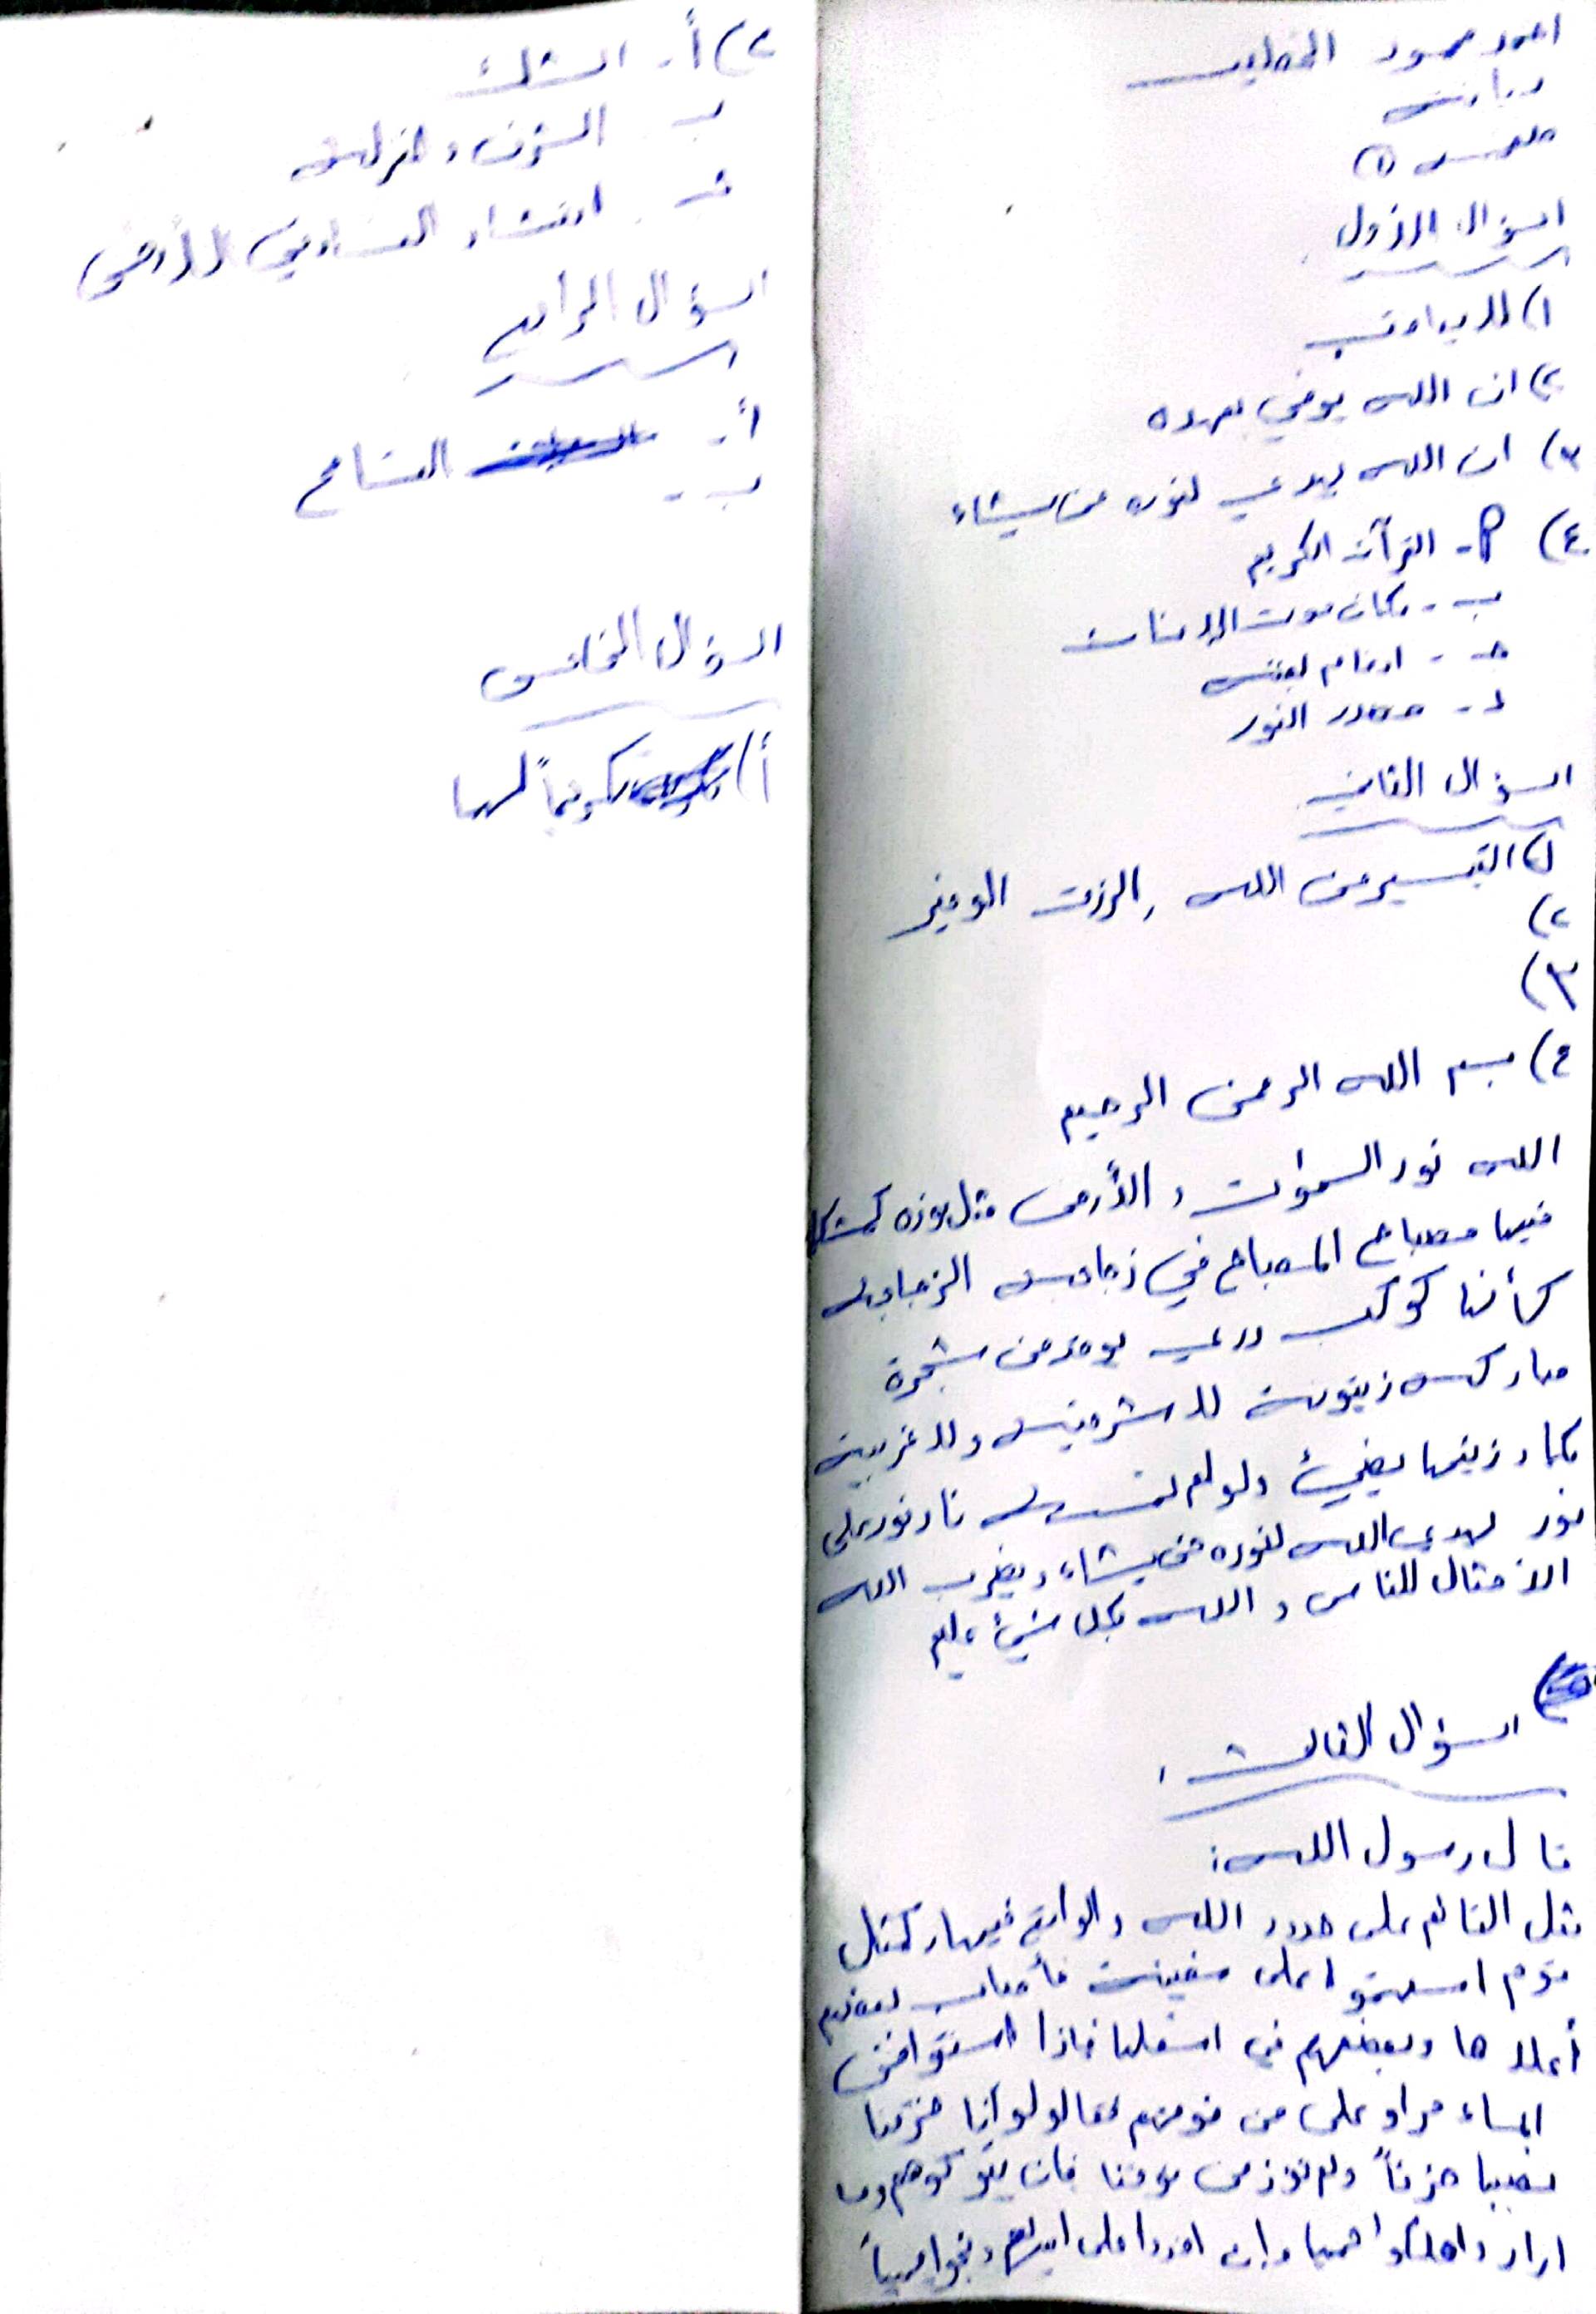 احمد محمود الخطيب
ديانة
السؤال الاول
١)
٢) ان الله يوفي بعهده
٣) ان الله يهدي لنوره من يشاء
٤) أ- القرآن الكريم
ب- مكان
ج- ادغام بغنة
د- مصدر النور
السؤال الثاني
١) التيسير من الله والرزق الوفير
٢)
٣)
٤) بسم الله الرحمن الرحيم
الله نور السموات و الأرض مثل نوره كمشكا
فيها مصباح المصباح في زجاجة الزجاجة
كأنها كوكب دري يوقد من شجرة
مباركة زيتونة لا شرقية ولا غربية
يكاد زيتها يضيئ ولو لم تمسسه نار نور على
نور يهدي الله لنوره من يشاء ويضرب الله
الامثال للناس و الله بكل شيئ عليم
السؤال الثالث
قال رسول الله:
مثل القائم على حدود الله والواقع فيها كمثل
قوم استهمو اعلى سفينة فأصاب بعضهم
أعلاها وبعضهم في اسفلها فاذا استقوا من
الماء مراو على من فوقهم فقالو لو أنا خرقنا
نصيبا خرقاً ولم نؤذ من فوقنا فان يتركوهم وما
اراد واهلكوا جميعا وإن اخذوا على ايديهم ونجوا جميعاً
٢) أ- الشك
ب- الشرف و
ج- انتشار الفساد في الأرض
السؤال الرابع
أ- التسامح
ب-
السؤال الخامس
أ) تكريماً لها